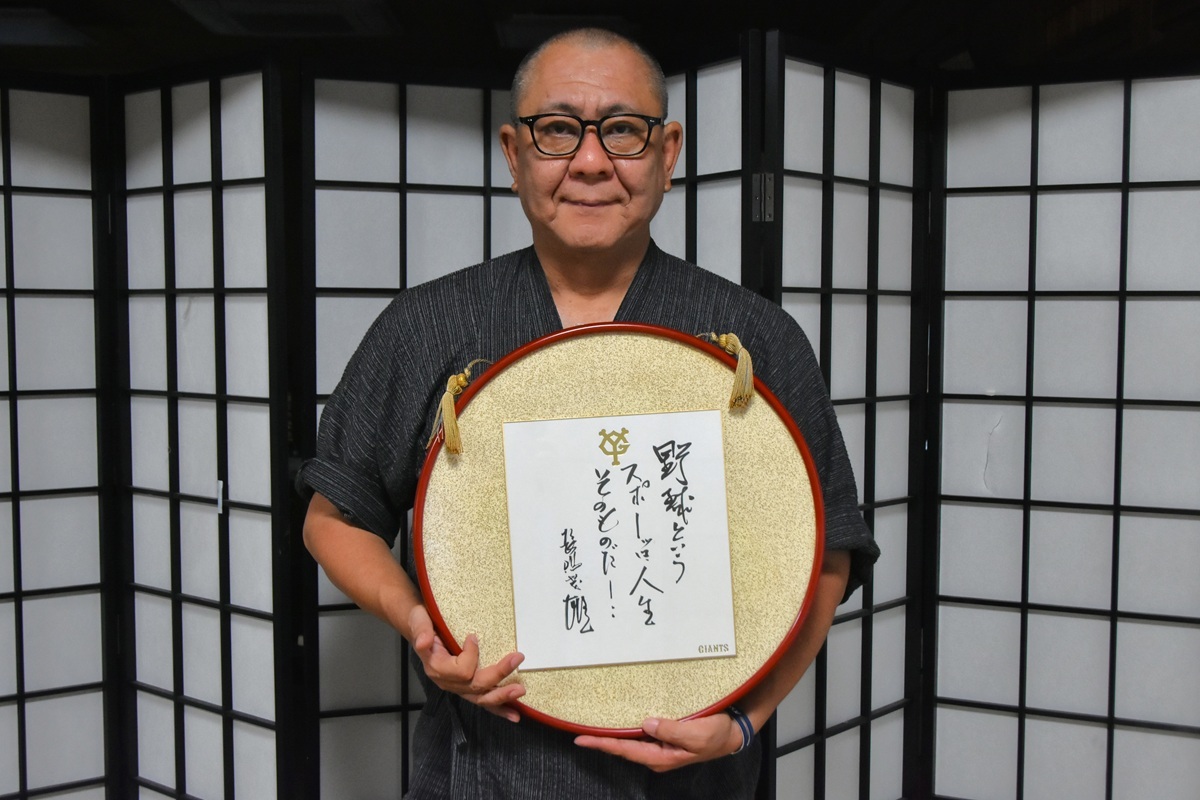 野球という
スポーツは人生
そのものだ！‥
長嶋茂雄
YG
GIANTS